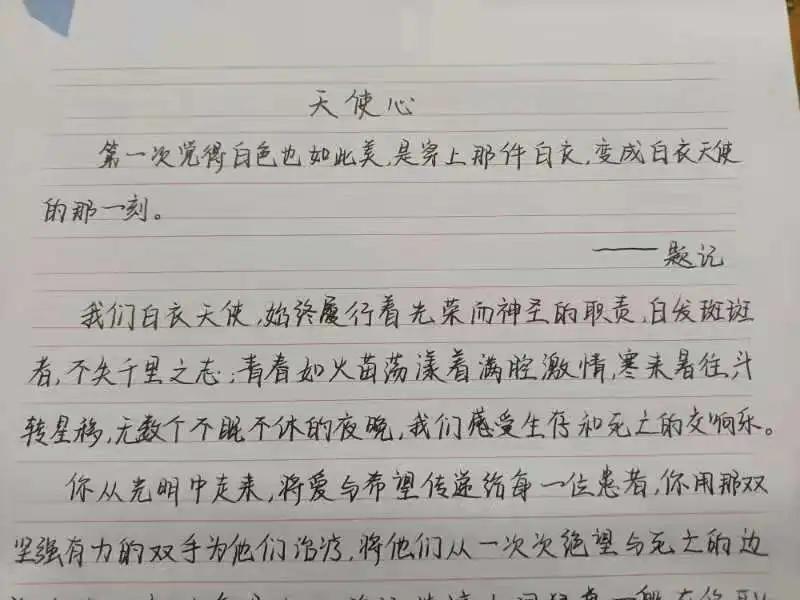 天使心
第一次觉得白色也如此美,是穿上那件白衣,变成白衣天使
的那一刻。
——题记
我们白衣天使,始终履行着光荣而神圣的职责,白发斑斑
者,不失千里之志;青春如火苗荡漾着满腔激情,寒来暑往,斗
转星移,无数个不眠不休的夜晚,我们感受生存和死亡的交响乐。
你从光明中走来,将爱与希望传递给每一位患者,你用那双
坚强有力的双手为他们治疗,将他们从一次次绝望与死亡的边